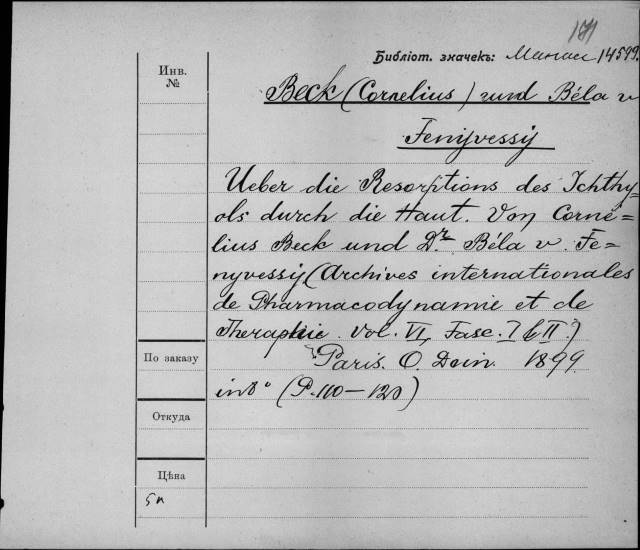 171
Библіот. значекъ: Манас 14599.
Инв.
№
Beck (Cornelius) und Béla v
Fenyvessy
Ueber die Resorptions des Ichthy=
ols durch die Haut. Von Corne=
lius Beck und Dr. Béla v. Fe=
nyvessy (Archives internationales
de Pharmacodynamie et de
Therapie. Vol. VI, Fasc. I & II)
По заказу
Paris. O. Doin. 1899.
in 8° (P. 110-120)
Откуда
Цѣна
5к